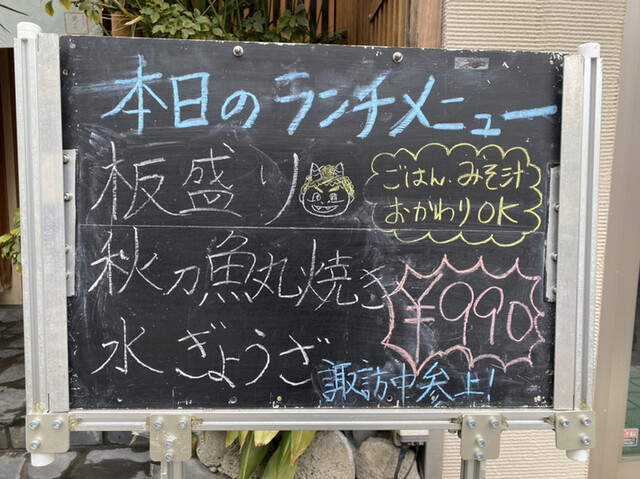 本日のランチメニュー
板盛り
ごはん・みそ汁
おかわりOK
秋刀魚丸焼き
¥990
水ぎょうざ
諏訪中参上!